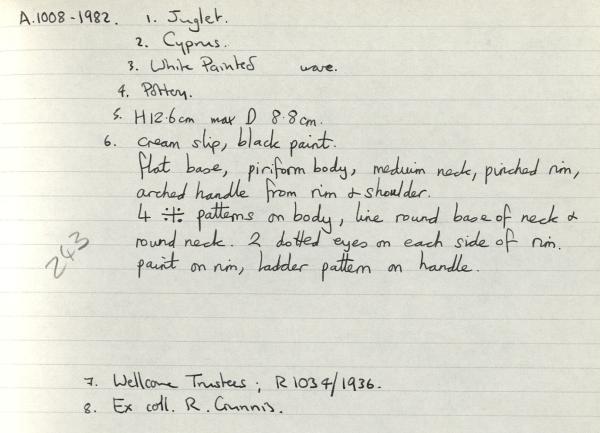 A.1008-1982. 1. Juglet.
2. Cyprus.
3. White Painted ware.
4. Pottery.
5. H12.6cm max D 8.8cm.
6. cream slip, black paint.
flat base, piriform body, medium neck, pinched rim,
arched handle from rim & shoulder.
4 ⁜ patterns on body, line round base of neck &
round neck. 2 dotted eyes on each side of rim.
paint on rim, ladder pattern on handle.
243
7. Wellcome Trustees; R1034/1936.
8. Ex coll. R. Gunnis.